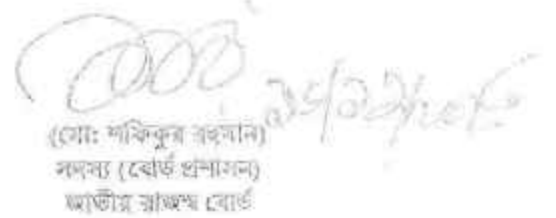 (মোঃ শফিকুর রহমান)
সদস্য (বোর্ড প্রশাসন)
জাতীয় রাজস্ব বোর্ড